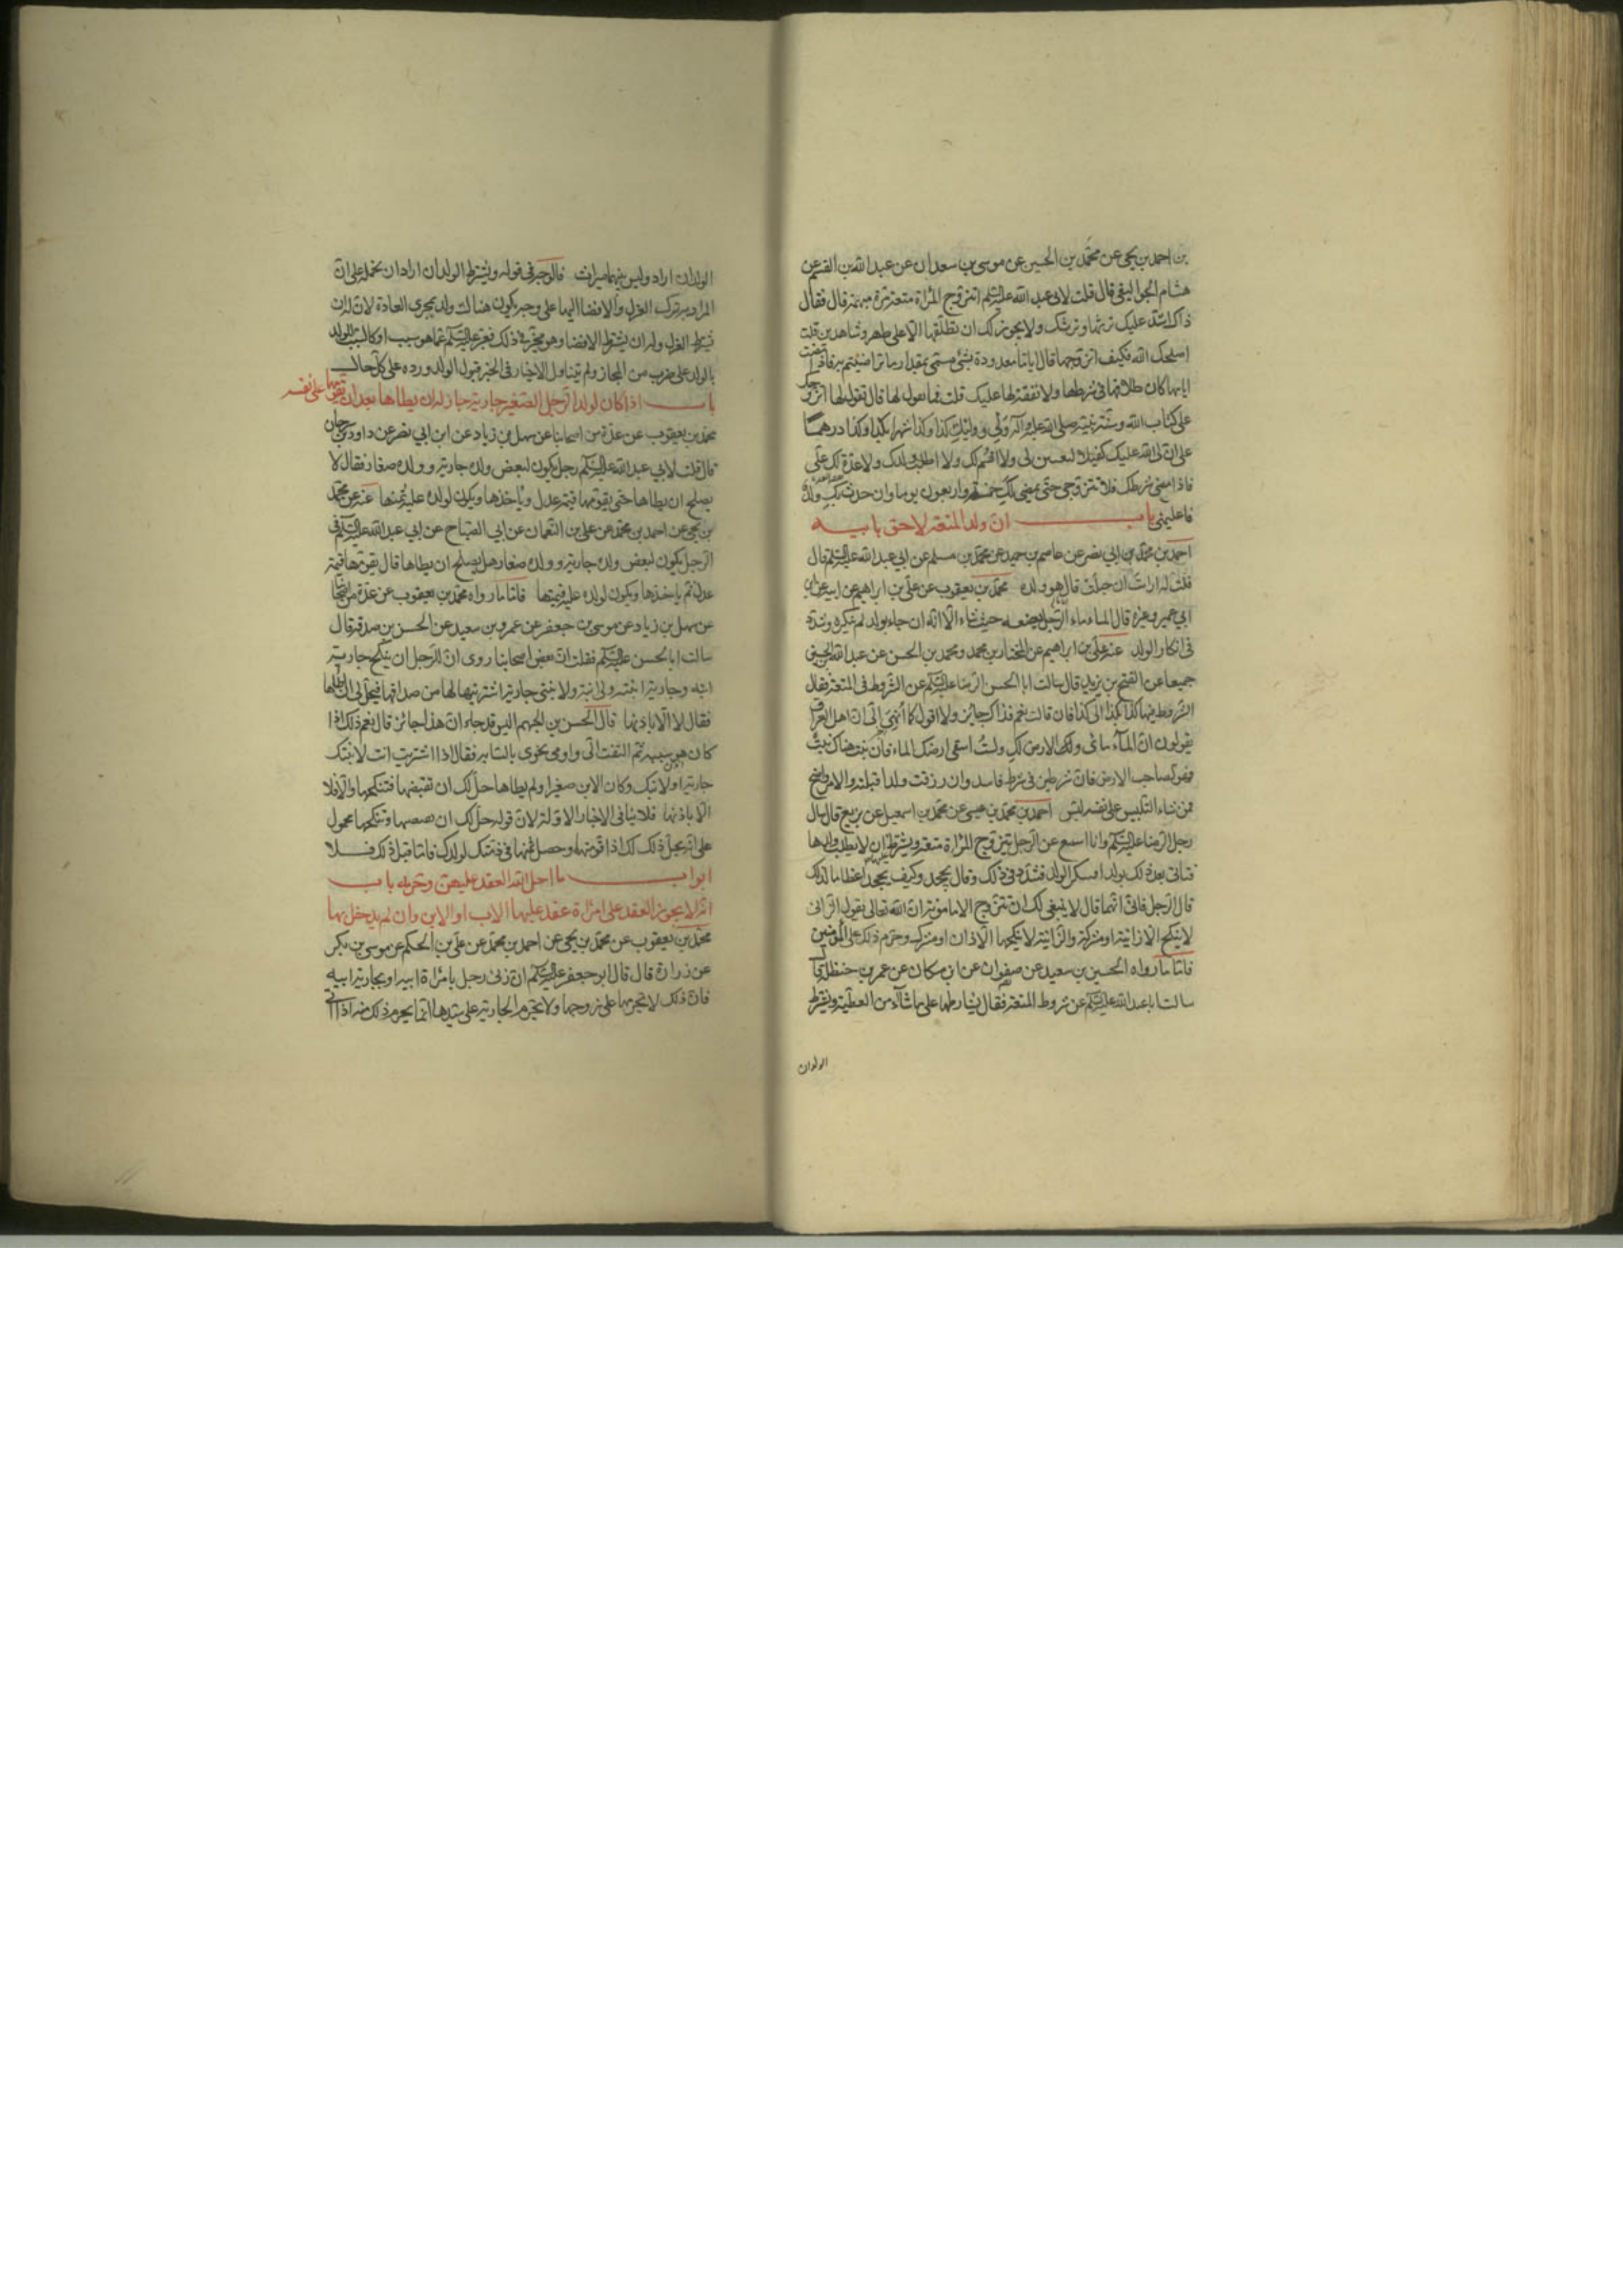 بن احمد بن يحيى عن محمّد بن الحسين عن موسى بن سعدان عن عبد الله بن القسم عن
هشام الجواليقى قال قلت لابى عبد الله عليه السلم اتزوج المراة متعة مرة مبهمة قال فقال
ذاك اشد عليك ترثها وترثك ولا يجوز لك ان تطلقها الا على طهر وشاهدين قلت
اصلحك الله فكيف اتزوجها قال اياما معدودة بشئ مسمى بمقدار ما تراضيتم به فاذا مضت
ايامها كان طلاقها فى شرطها ولا نفقة لها عليك قلت فما نقول لها قال تقول لها اتزوجك
على كتاب الله وسنة نبيه صلى الله عليه وآله والله وليى ووليك كذا وكذا شهرا بكذا وكذا درهما
على ان لى الله عليك كفيلا لتفين لى ولا اقسم لك ولا اطلب ولدك ولا عدة لك على
فاذا مضى شرطك فلا تتزوجى حتى يمضى لك خمسة واربعون يوما وان حدث بك ولد
فاعلمينى باب ان ولد المتعة لاحق بابيه
احمد بن محمد بن ابى نصر عن عاصم بن حميد عن محمّد بن مسلم عن ابى عبد الله عليه السلم قال
قلت له ارايت ان حبلت قال هو ولده محمد بن يعقوب عن على بن ابراهيم عن ابيه عن ابن
ابى عمير وغيره قال الماء ماء الرجل يضعه حيث شاء الا انه ان جاء بولد لم ينكره وشدد
فى انكار الولد عنه عن على بن ابراهيم عن المختار بن محمد ومحمد بن الحسن عن عبد الله بن الحسن
جميعا عن الفتح بن يزيد قال سالت ابا الحسن الرضا عليه السلم عن الشروط فى المتعة فقال
الشروط فيها كذا بكذا الى كذا فان قالت نعم فذاك جايز ولا اقول كما أنهى الى ان اهل العراق
يقولون ان الماء مائى ولك الارض لك ولستُ اسقى ارضك الماء فان نبت هناك نبت
فهو لصاحب الارض فان شرطين فى شرط فاسد وان رزقت ولدا قبله والامر واضح
فمن شاء التلبيس على نفسه لبس احمد بن محمد بن عيسى عن محمّد بن اسمعيل بن بزيع قال سال
رجل الرضا عليه السلم وانا اسمع عن الرجل يتزوج المراة متعة ويشترط ان لا يطلب ولدها
فتاتى بعد ذلك بولد افينكر الولد فشدد فى ذلك وقال يجحد وكيف يجحد اعظاما لذلك
قال الرجل فان اتهمها قال لا ينبغى لك ان تتزوج الا مامونة ان الله تعالى يقول الزانى
لا ينكح الا زانية او مشركة والزانية لا ينكحها الا زان او مشرك وحرم ذلك على المؤمنين
فاما ما رواه الحسين بن سعيد عن صفوان عن ابن مسكان عن عمر بن حنظلة قال
سالت ابا عبد الله عليه السلم عن شروط المتعة فقال يشارطها على ما شاء من العطية ويشترط
الولدان
الولد ان اراد وليس بينهما ميراث فالوجه فى قوله ويشترط الولد ان اراد ان نحمله على ان
المراد به ترك العزل والافضا اليها على وجه يكون هناك ولد بمجرى العادة لان له ان
يشترط العزل وله ان يشترط الافضا وهو مخير فى ذلك فعبر عليه السلم عما هو سبب او كالسبب للولد
بالولد على ضرب من المجاز ولم يتناول الاخبار فى الخبر قبول الولد ورده على كل حال
باب اذا كان لولد الرجل الصغير جارية جاز له ان يطاها بعد ان يقومها على نفسه
محمد بن يعقوب عن عدة من اصحابنا عن سهل بن زياد عن ابن ابى نصر عن داود بن سرحان
قال قلت لابى عبد الله عليه السلم رجل يكون لبعض ولده جارية وولده صغار فقال لا
يصلح ان يطاها حتى يقومها قيمة عدل وياخذها ويكون لولده عليه ثمنها عنه عن محمّد
بن يحيى عن احمد بن محمد عن على بن النعمان عن ابى الصباح عن ابى عبد الله عليه السلم فى
الرجل يكون لبعض ولده جارية وولده صغار هل يصلح ان يطاها قال يقومها قيمة
عدل ثم ياخذها ويكون لولده عليه قيمتها فاما ما رواه محمد بن يعقوب عن عدة من اصحابنا
عن سهل بن زياد عن موسى بن جعفر عن عمرو بن سعيد عن الحسن بن صدقة قال
سالت ابا الحسن عليه السلم فقلت ان بعض اصحابنا روى ان للرجل ان ينكح جارية
ابنه وجارية ابنته ولى ابنة ولابنتى جارية اشتريتها لها من صداقها فيحل لى ان اطاها
فقال لا الا باذنها قال الحسن بن الجهم اليس قد جاء ان هذا جائز قال نعم ذلك اذا
كان هو سببه ثم التفت الى واومى نحوى بالسبابة فقال اذا اشتريت انت لابنتك
جارية او لابنك وكان الابن صغيرا ولم يطاها حل لك ان تقبضها فتنكحها والا فلا
الا باذنها فلا ينافى الاخبار الاولة لان قوله حل لك ان وتنكحها محمول
على انه يحل ذلك لك اذا قومتها وحصل ثمنها فى ذمتك لولدك فاما قبل ذلك فلا
ابواب ما احل الله العقد عليهن وحرمه باب
انه لا يجوز العقد على امراة عقد عليها الاب او الابن وان لم يدخل بها
محمّد بن يعقوب عن محمّد بن يحيى عن احمد بن محمّد عن على بن الحكم عن موسى بن بكر
عن زرارة قال قال ابو جعفر عليه السلم ان زنى رجل بامراة ابيه او بجارية ابيه
فان ذلك لا يحرمها على زوجها ولا يحرم الجارية على سيدها انما يحرم ذلك منه اذا اتى